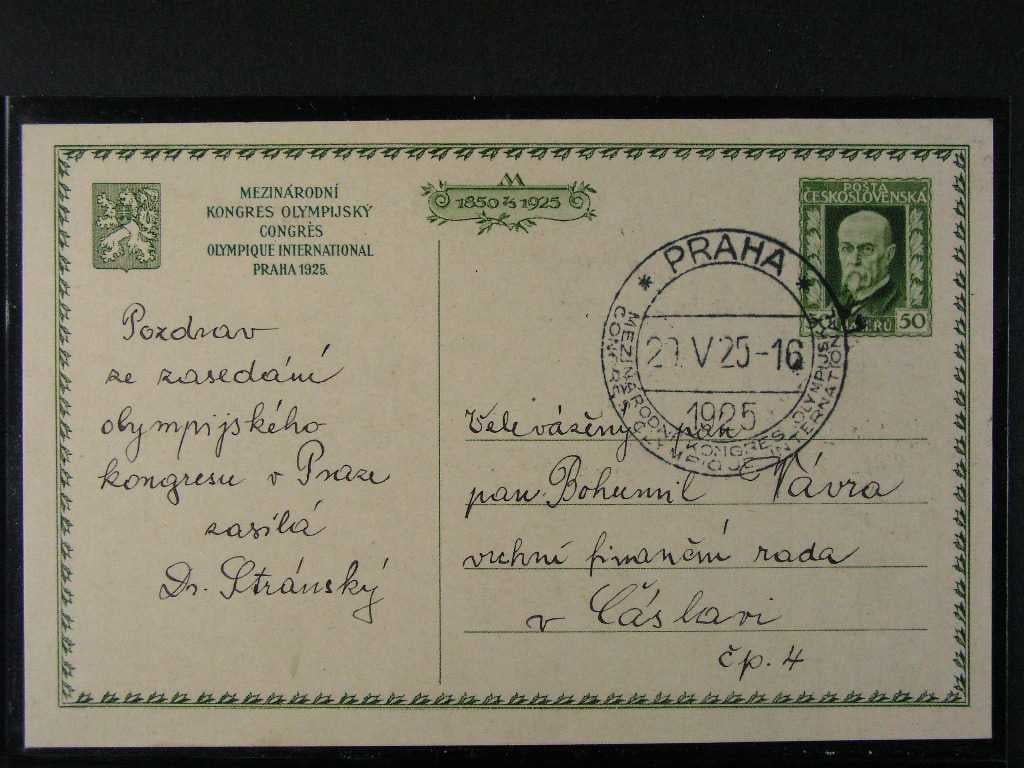 MEZINÁRODNÍ
KONGRES OLYMPIJSKÝ
CONGRÈS
OLYMPIQUE INTERNATIONAL
PRAHA 1925.
M
1850 7/3 1925
POSTA
ČESKOSLOVENSKÁ
50
PRAHA
V 25-16
1925
MEZINÁRODNÍ KONGRES OLYMPIJSKÝ
CONGRÈS OLYMPIQUE INTERNATIONAL
Pozdrav
ze zasedání
olympijského
kongresu v Praze
zasílá
Dr. Stránský
Velevážený pan
pan Bohumil Vávra
vrchní finanční rada
v Čáslavi
čp. 4